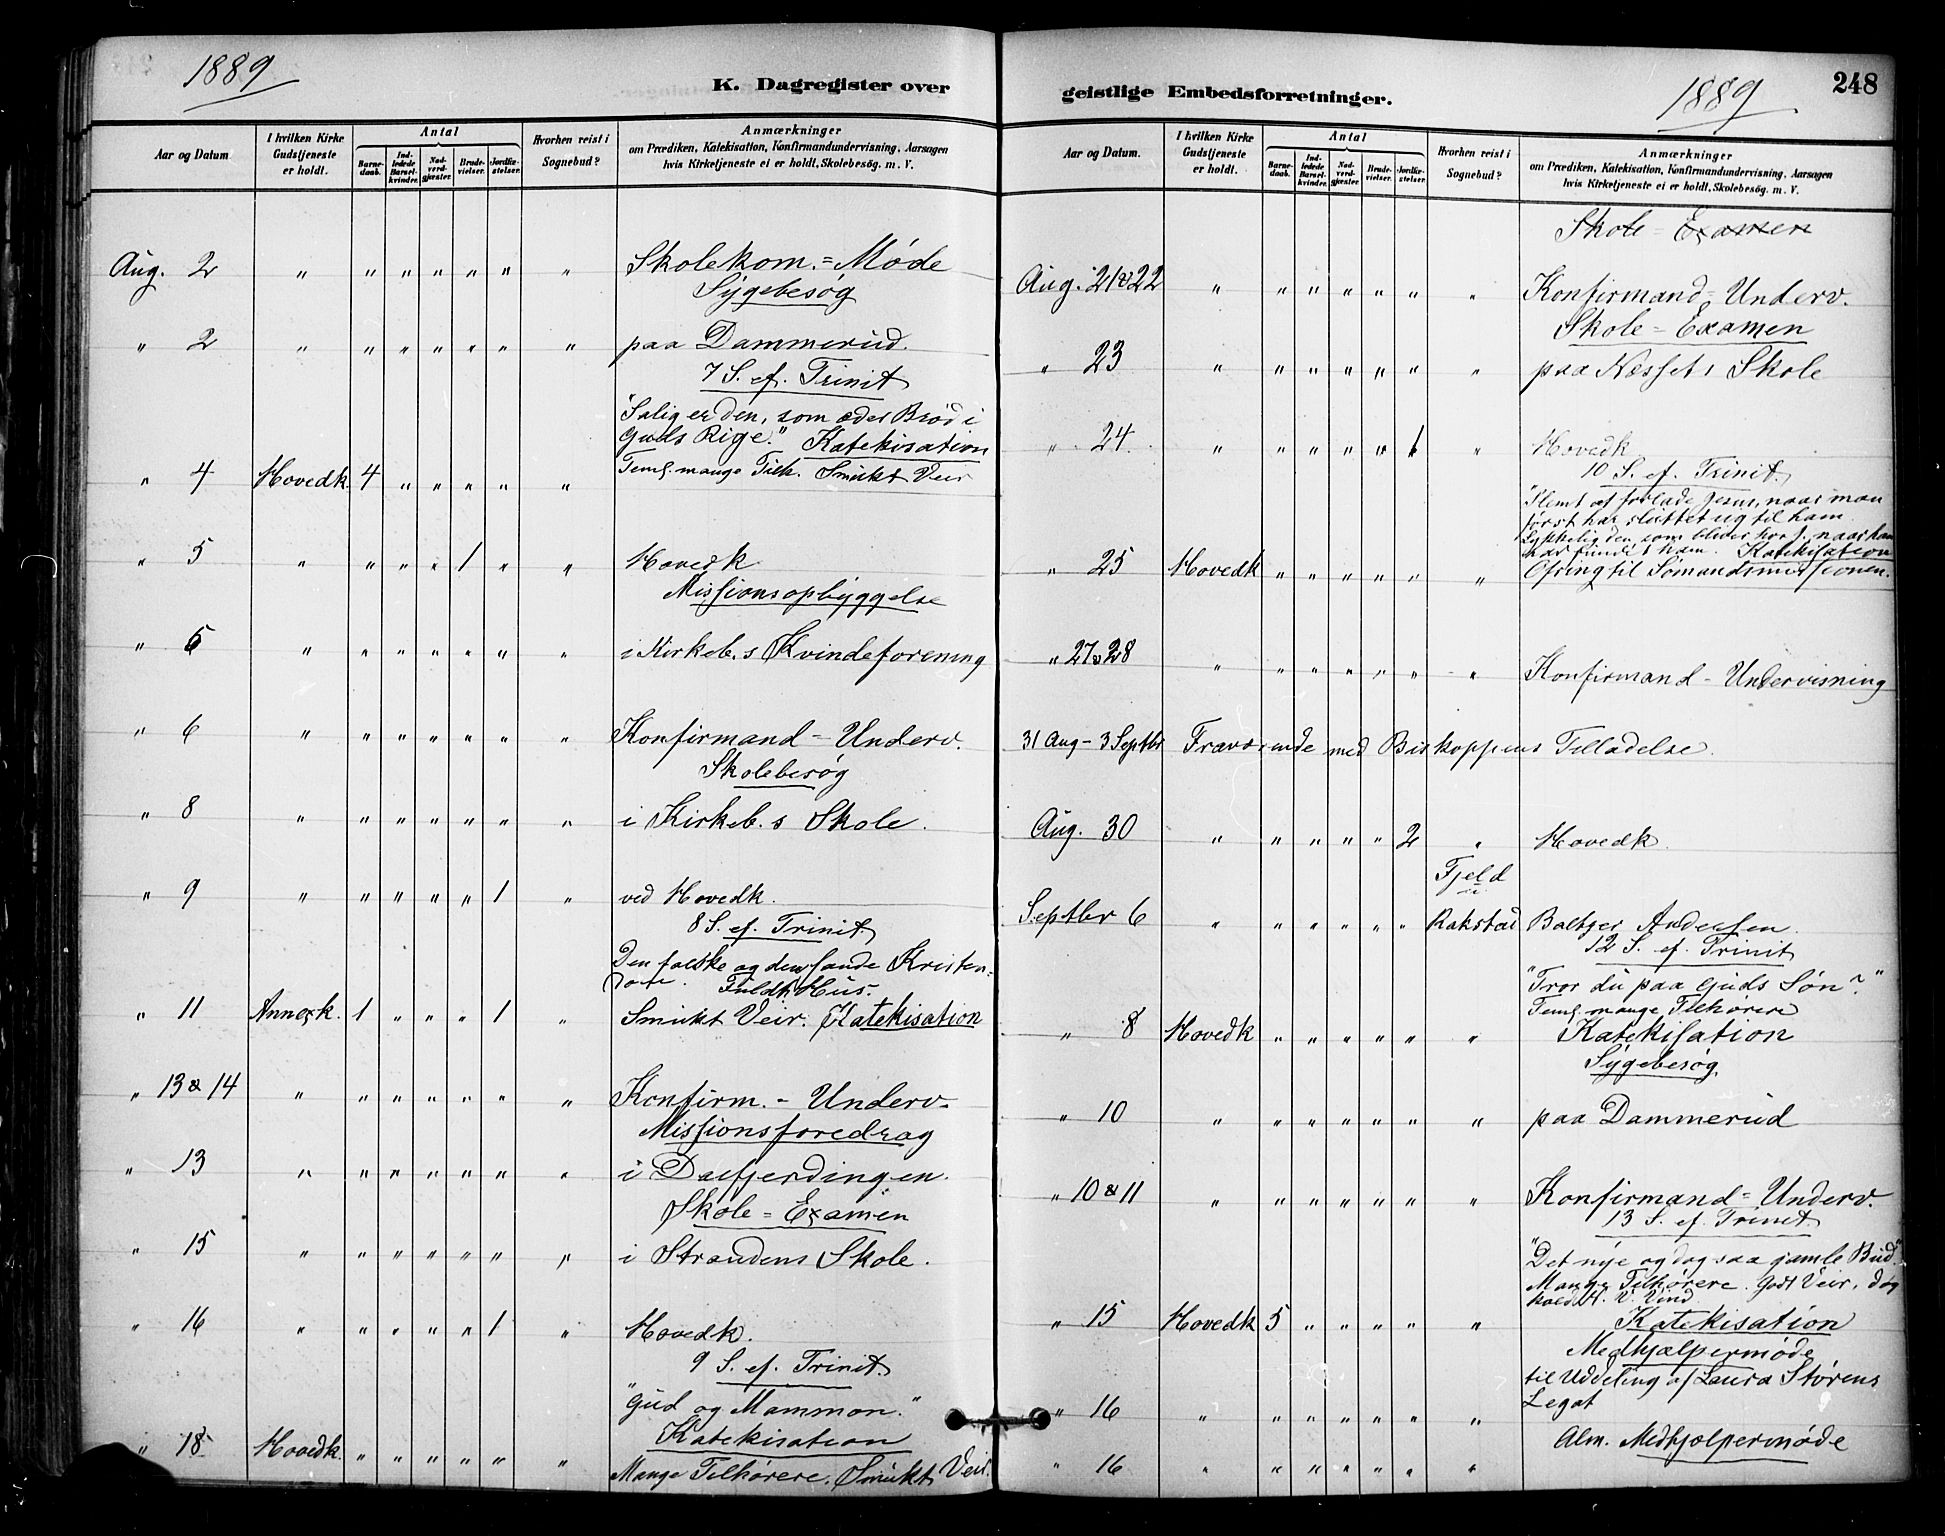 1889
K. Dagregister over
Aar og Datum
I hvilken Kirke Gudstjeneste er holdt.
Antal
Barnedaab.
Indledede Barselkvinder.
Nadverdgjæster.
Brudevielser.
Jordfæstelser.
Hvorhen reist i Sognebud?
Anmærkninger
om Prædiken, Katekisation, Konfirmandundervisning, Aarsagen
hvis Kirketjeneste ei er holdt, Skolebesøg. m. V.
Aug. 2 " " " " " " " Skolekom.=Møde
Sygebesøg
" 2 " " " " " " " paa Dammerud.
7 S. ef. Trinit
"Salig er den, som æder Brød i
Guds Rige." Katekisation
Teml. mange Tilh. Smukt Veir
" 4 Hovedk. 4 " " " " "
" 5 " " " " 1 " " Hovedk
Missionsopbyggelse
" 5 " " " " " " " i Kirkeb.s Kvindeforening
" 6 " " " " " " " Konfirmand-Underv.
Skolebesøg
" 8 " " " " " " " i Kirkeb.s Skole.
" 9 " " " " " 1 " ved Hovedk.
8 S. ef. Trinit.
Den falske og den sande Kristen-
dom. Fuldt Hus.
" 11 Annexk. 1 " " " 1 " Smukt Veir. Katekisation
" 13 & 14 " " " " " " " Konfirm.-Underv.
Missionsforedrag
" 13 " " " " " " " i Dalfjerdingen.
Skole=Examen
" 15 " " " " " " " i Strandens Skole.
" 16 " " " " " 1 " Hovedk.
9 S. ef. Trinit.
"Gud og Mammon."
Katekisation
" 18 Hovedk. " " " " " "
Mange Tilhørere. Smukt Veir.
geistlige Embedsforretninger.
1889
248
Aar og Datum.
I hvilken Kirke Gudstjeneste er holdt.
Antal
Barnedaab.
Indledede Barselkvinder.
Nadverdgjæster.
Brudevielser.
Jordfæstelser.
Hvorhen reist i Sognebud?
Anmærkninger
om Prædiken, Katekisation, Konfirmandundervisning, Aarsagen
hvis Kirketjeneste ei er holdt, Skolebesøg. m. V.
Skole=Examen
Aug. 21 & 22 " " " " " " " Konfirmand=Underv.
Skole=Examen
" 23 " " " " " " " paa Næssets Skole
" 24 " " " " " 1 " Hovedk
10 S. ef. Trinit.
"Slemt at forlade Jesus, naar man
først har sluttet sig til ham
Lykkelig den som bliver hos J. naar han
har fundet ham. Katekisation
" 25 Hovedk " " " " " " Ofring til Sømandsmissionen.
" 27 & 28 " " " " " " " Konfirmand-Undervisning
31 Aug-3 Septbr Fraværende med Biskoppens Tilladelse.
Aug. 30 " " " " " 2 " Hovedk.
Fjeld
u.
Septbr 6 " " " " " " Rakstad Baltzer Andersen.
12 S. ef. Trinit
"Tror du paa Guds Søn?"
Teml. mange Tilhørere
" 8 Hovedk " " " " " " Katekisation
Sygebesøg
" 10 " " " " " " " paa Dammerud
" 10 & 11 " " " " " " " Konfirmand=Underv.
13 S. ef. Trinit.
"Det nye og dog saa gamle Bud."
Mange Tilhørere. Godt Veir, dog
kold N. V. Vind.
" 15 Hovedk 5 " " " " " Katekisation
Medhjælpermøde
til Uddeling af Laura Størens
" 16 " " " " " " " Legat
Alm. Medhjælpermøde
" 16 " " " " " " "